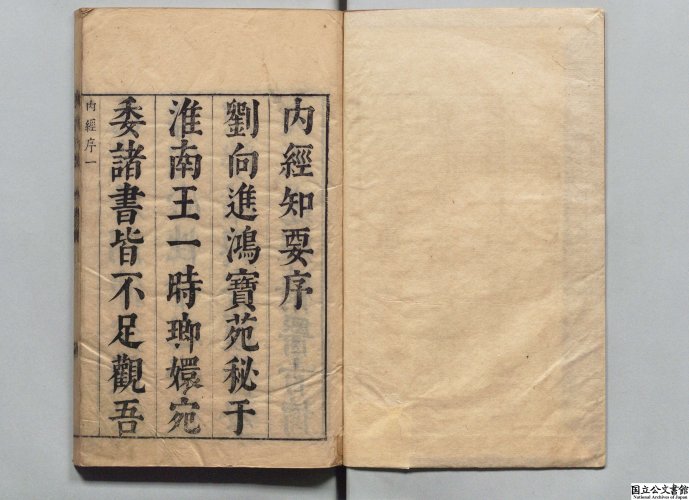 内經知要序
劉向進鴻寶苑秘于
淮南王一時瑯嬛宛
委諸書皆不足觀吾
内經序一
国立公文書館
National Archives of Japan